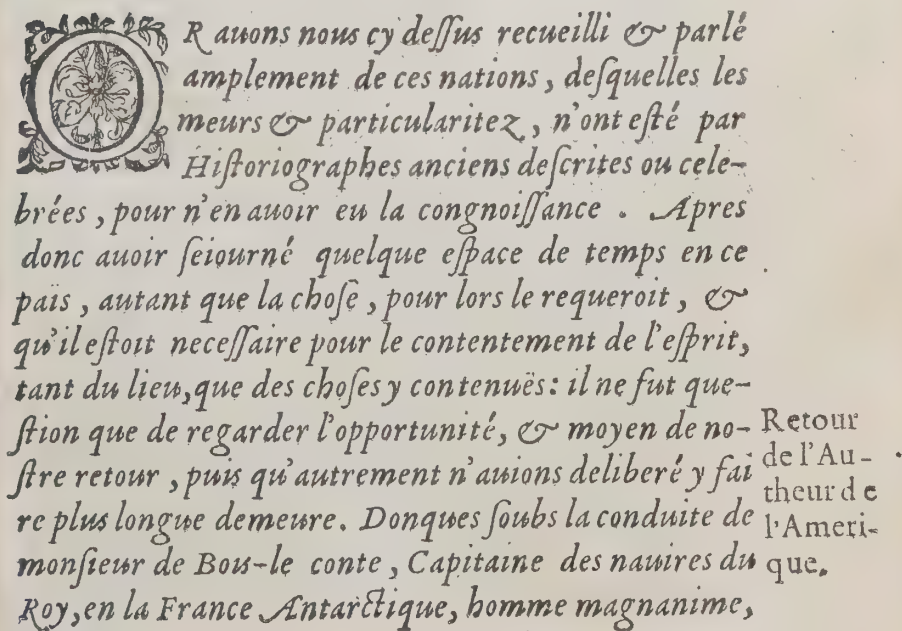 OR auons nous cy deſſus recueilli & parlé
amplement de ces nations, deſquelles les
meurs & particularitez, n'ont eſté par
Hiſtoriographes anciens deſcrites ou cele-
brées, pour n'en auoir eu la congnoiſſance . Apres
donc auoir ſeiourné quelque eſpace de temps en ce
païs, autant que la choſe, pour lors le requeroit, &
qu'il eſtoit neceſſaire pour le contentement de l'eſprit,
tant du lieu, que des choſes y contenuës: il ne fut que-
ſtion que de regarder l'opportunité, & moyen de no-
ſtre retour, puis qu'autrement n'auions deliberé y fai
re plus longue demeure. Donques ſoubs la conduite de
monſieur de Bou-le conte, Capitaine des nauires du
Roy, en la France Antarctique, homme magnanime,
Retour
de l'Au-
theur de
l'Ameri-
que.